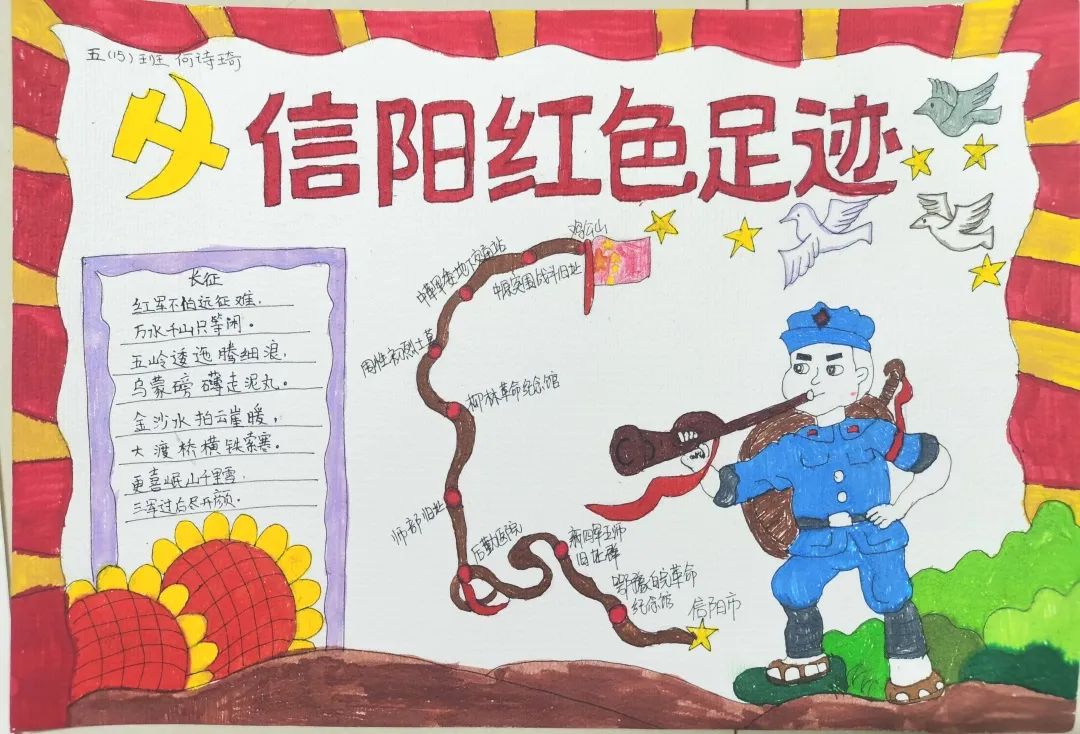 五(15)班 何诗琦
信阳红色足迹
长征
红军不怕远征难,
万水千山只等闲。
五岭逶迤腾细浪,
乌蒙磅礴走泥丸。
金沙水拍云崖暖,
大渡桥横铁索寒。
更喜岷山千里雪,
三军过后尽开颜。
鸡公山
中原突围战斗旧址
中革军委地下交通站
周性初烈士墓
柳林革命纪念馆
师部旧址
后勤医院
新四军五师
旧址群
鄂豫皖革命
纪念馆
信阳市